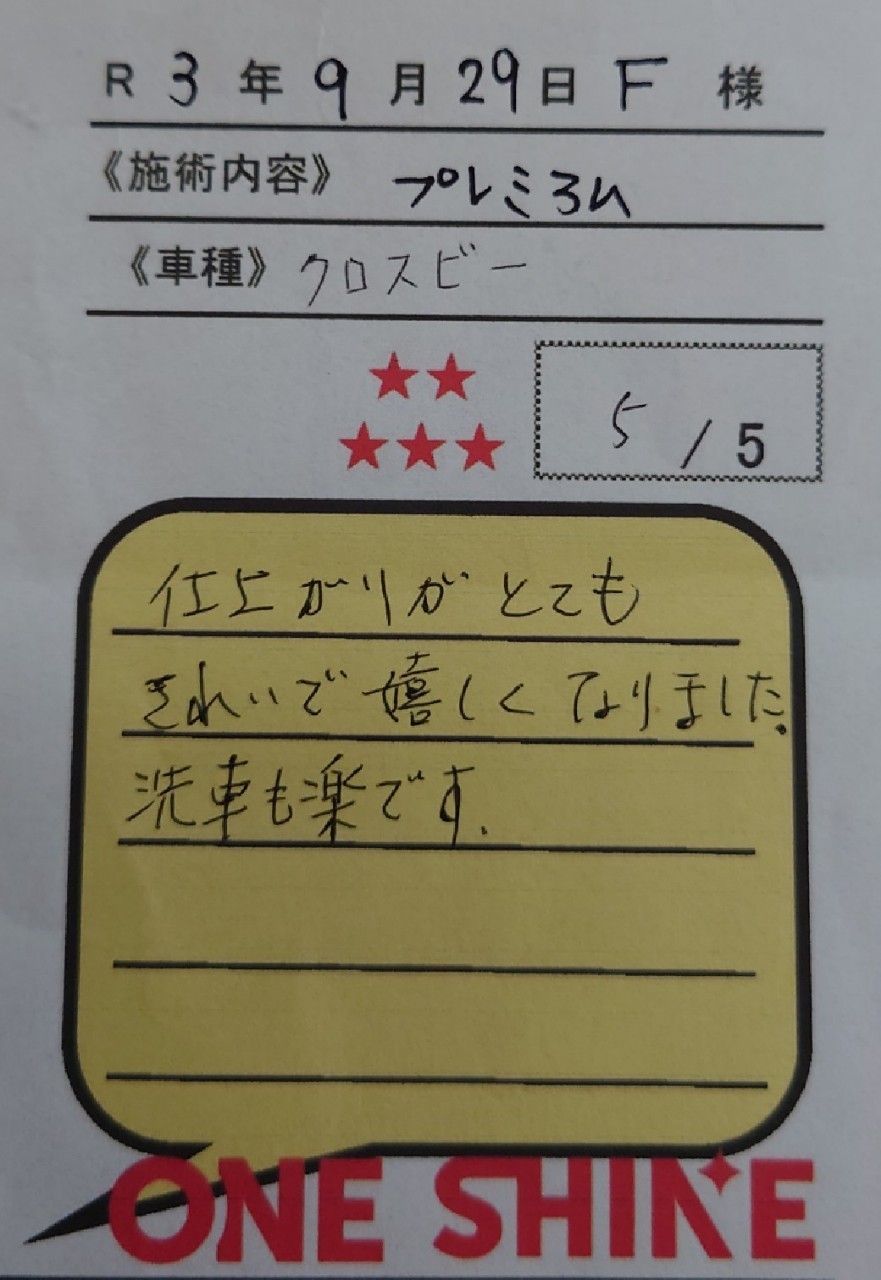 R 3 年 9 月 29 日 F 様
《施術内容》 プレミアム
《車種》 クロスビー
5 / 5
仕上がりがとても
きれいで嬉しくなりました。
洗車も楽です.
ONE SHINE